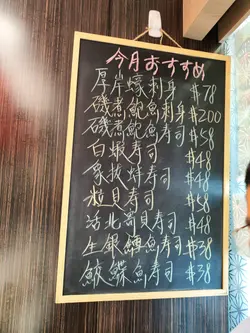 今月おすすめ
厚岸蠔刺身 $78
磯煮鮑魚刺身 $200
磯煮鮑魚寿司 $58
白蝦寿司 $48
象拔蚌寿司 $48
粒貝寿司 $58
活北寄貝寿司 $48
生銀鱈魚寿司 $38
鰈魚寿司 $38